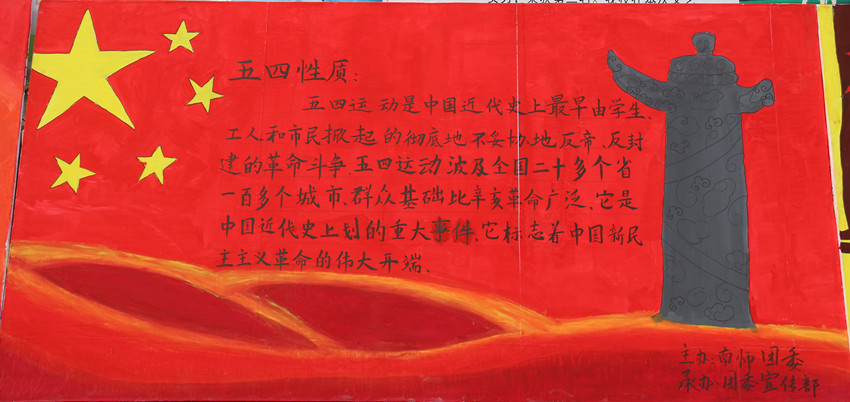 五四性质:
五四运动是中国近代史上最早由学生、
工人和市民掀起的彻底地不妥协地反帝、反封
建的革命斗争.五四运动波及全国二十多个省
一百多个城市.群众基础比辛亥革命广泛.它是
中国近代史上划的重大事件.它标志着中国新民
主主义革命的伟大开端.
主办:南师团委
承办:团委宣传部